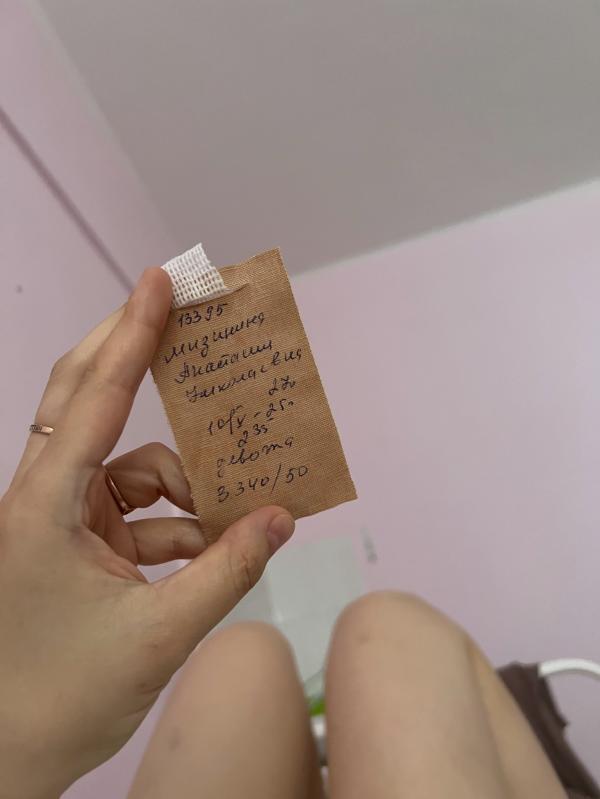 13395
Мизинина
Анастасия
Николаевна
10/V - 25г
235
девочка
3340/50